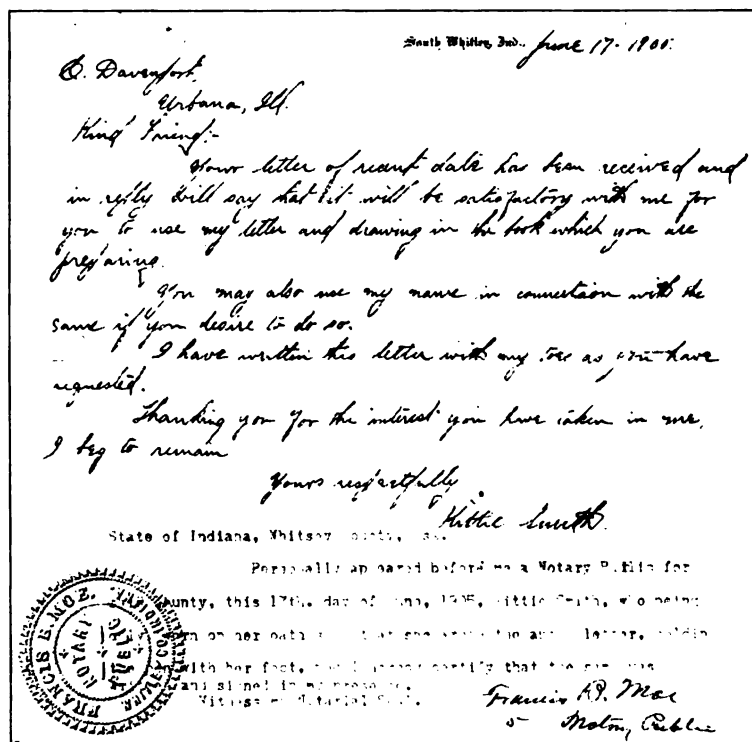 South Whitley, Ind., June 17 - 1905.
C. Davenport,
Urbana, Ill.
Kind Friend:-
Your letter of recent date has been received and
in reply will say that it will be satisfactory with me for
you to use my letter and drawing in the book which you are
preparing.
You may also use my name in connection with the
same if you desire to do so.
I have written this letter with my toes as you have
requested.
Thanking you for the interest you have taken in me,
I beg to remain
Yours respectfully
Kittie Smith.
State of Indiana, Whitley
Personally appeared before me a Notary Public for
county, this 17th. day of June, 1905, Kittie Smith, who being
on her oath that she wrote the letter,
with her feet, certify that the same was
and signed in my presence.
Witness my Notarial Seal.
Francis E. Moe
Notary Public
FRANCIS E. MOE.
NOTARY
PUBLIC